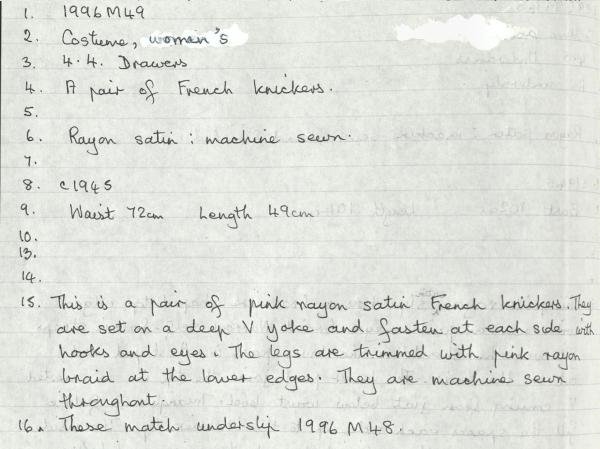 1. 1996 M49
2. Costume, women's
3. 4.4. Drawers
4. A pair of French knickers.
5.
6. Rayon satin : machine sewn.
7.
8. c1945
9. Waist 72cm Length 49cm
10.
13.
14.
15. This is a pair of pink rayon satin French knickers. They
are set on a deep V yoke and fasten at each side with
hooks and eyes. The legs are trimmed with pink rayon
braid at the lower edges. They are machine sewn
throughout.
16. These match underslip 1996 M48.